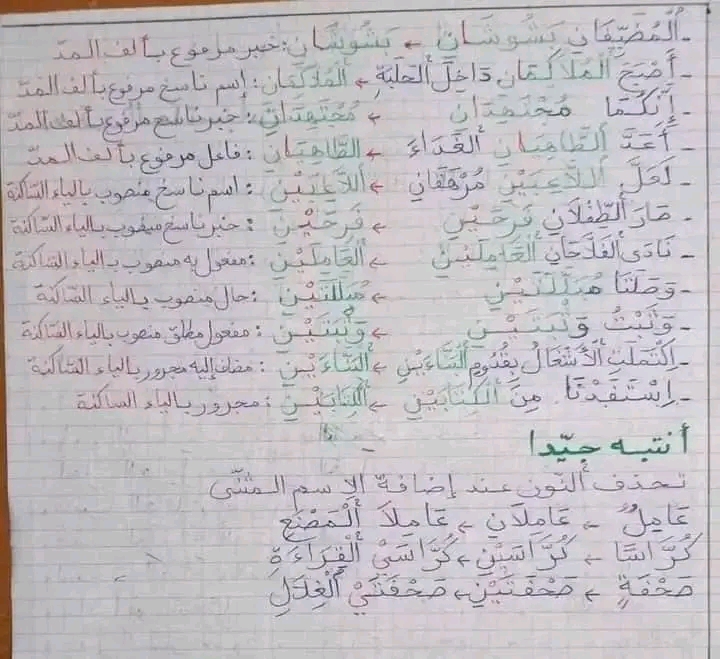 - اَلْمُضَيِّفَانِ بَشُوشَانِ ← بَشُوشَانِ : خبر مرفوع بألف المدّ
- أَصْبَحَ اَلْمُلاَكِمَانِ دَاخِلَ اَلْحَلَبَةِ ← اَلْمُلاَكِمَانِ : إسم ناسخ مرفوع بألف المدّ
- إِنَّكُمَا مُجْتَهِدَانِ ← مُجْتَهِدَانِ : خبر ناسخ مرفوع بألف المدّ
- أَعَدَّ اَلطَّاهِيَانِ اَلْغَدَاءَ ← اَلطَّاهِيَانِ : فاعل مرفوع بألف المدّ
- لَعَلَّ اَللاَّعِبَيْنِ مُرْهَقَانِ ← اَللاَّعِبَيْنِ : اسم ناسخ منصوب بالياء السّاكنة
- صَارَ اَلطِّفْلاَنِ فَرِحَيْنِ ← فَرِحَيْنِ : خبر ناسخ منصوب بالياء السّاكنة
- نَادَى اَلْفَلاَّحَانِ اَلْعَامِلَيْنِ ← اَلْعَامِلَيْنِ : مفعول به منصوب بالياء السّاكنة
- وَصَلْنَا مُبَلَّلَتَيْنِ ← مُبَلَّلَتَيْنِ : حال منصوب بالياء السّاكنة
- وَثَبْتُ وَثْبَتَيْنِ ← وَثْبَتَيْنِ : مفعول مطلق منصوب بالياء السّاكنة
- اِكْتَمَلَتِ اَلْأَشْغَالُ بِقُدُومِ اَلْبَنَّاءَيْنِ ← اَلْبَنَّاءَيْنِ : مضاف إليه مجرور بالياء السّاكنة
- اِسْتَفَدْنَا مِنَ اَلْكِتَابَيْنِ ← اَلْكِتَابَيْنِ : مجرور بالياء الساكنة
أنتبه جيّدا
تحذف اَلنون عند إضافة الإسم المثنّى
عَامِلٌ ← عَامِلاَنِ ← عَامِلاَ اَلْمَصْنَعِ
كُرَّاسًا ← كُرَّاسَيْنِ ← كُرَّاسَيْ اَلْقِرَاءَةِ
صَحْفَةٍ ← صَحْفَتَيْنِ ← صَحْفَتَيْ اَلْغِلاَلِ